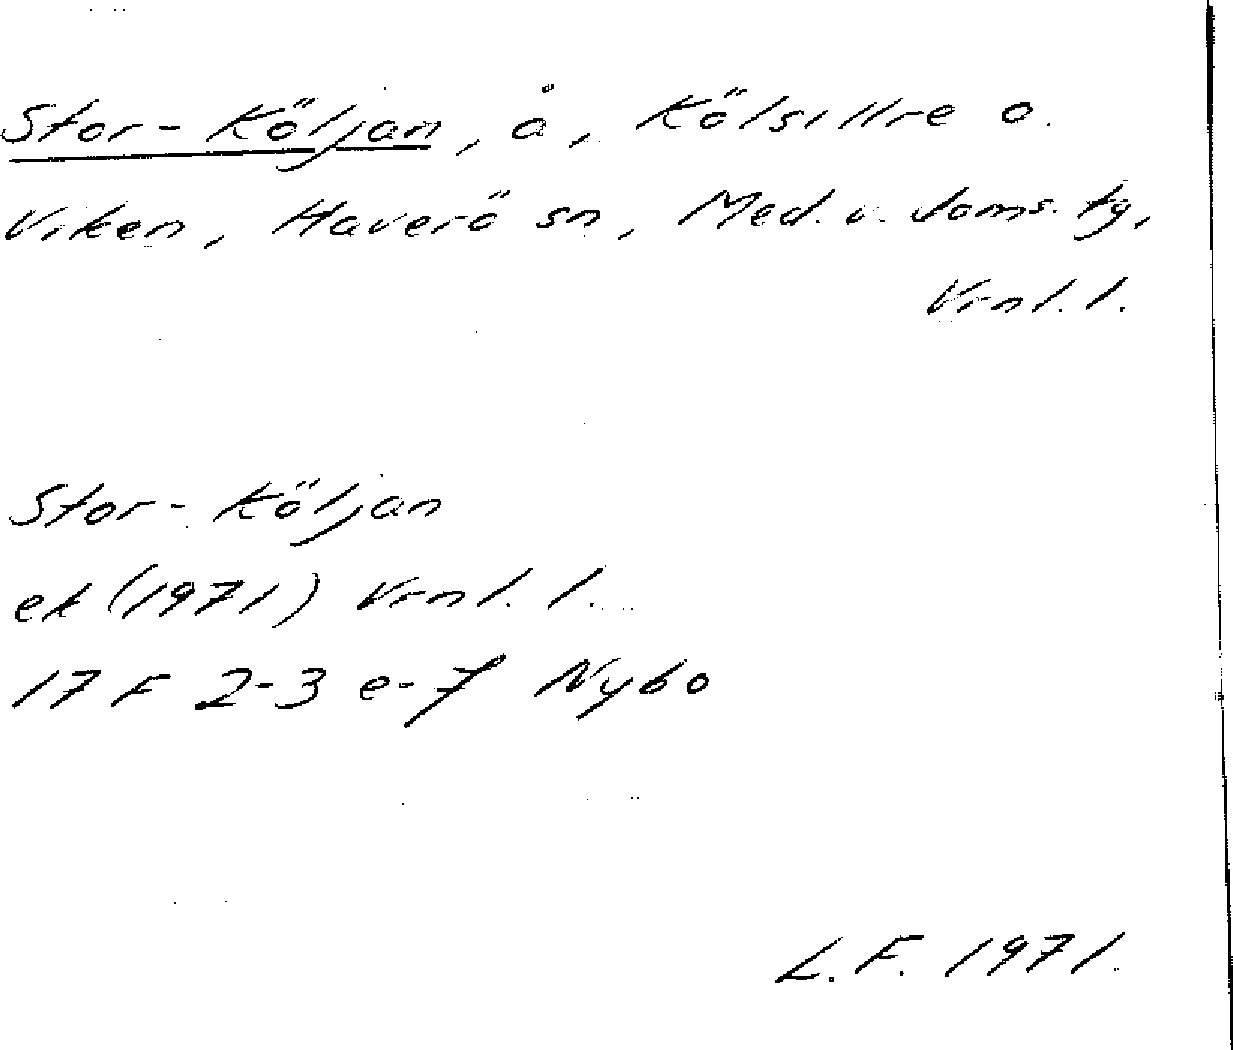 Stor-Köljan, å, Kölsillre o.
Viken, Haverö sn, Med. v. doms. tg,
Vrnl. l.
Stor-Köljan
ek (1971) Vrnl. l.
17 F 2-3 e-f Nybo
L.F. 1971.